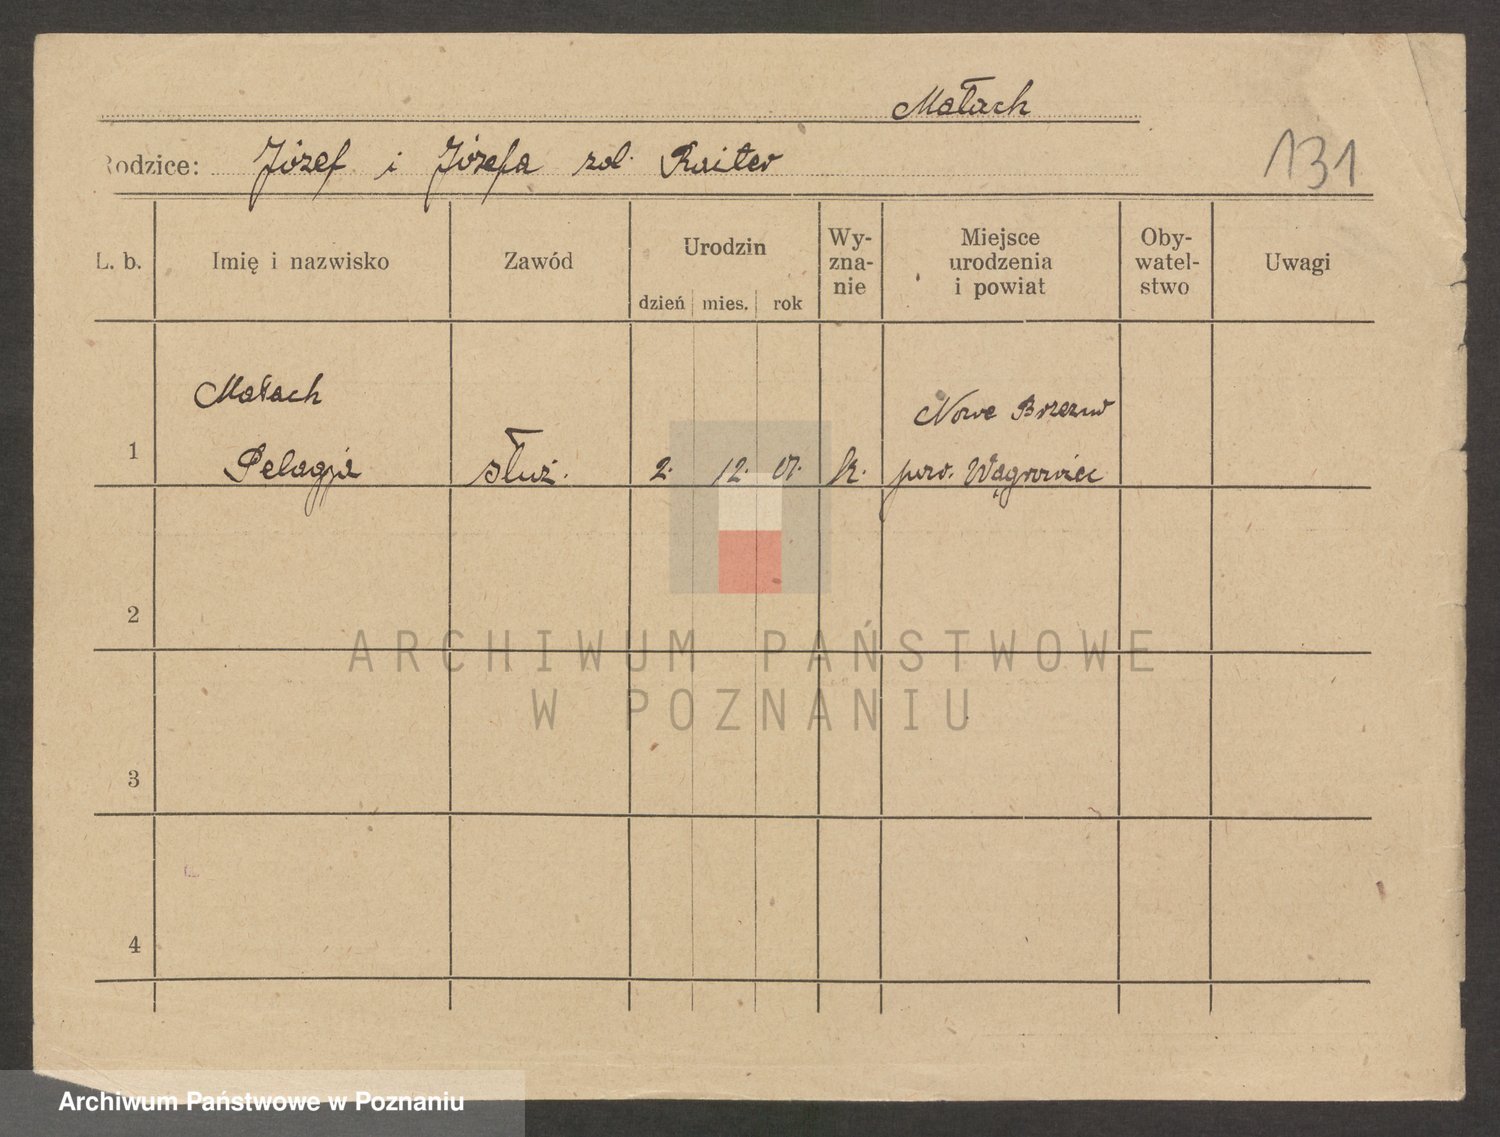 Małach
Rodzice: Józef i Józefa zd. Raiter
131
L. b. Imię i nazwisko Zawód Urodzin Wy- Miejsce Oby- Uwagi
zna- urodzenia watel-
nie i powiat stwo
dzień mies. rok
Małach
Nowe Brzezno
1 Pelagja służ. 2. 12. 07. k. pow. Wągrowiec
2
ARCHIWUM PAŃSTWOWE
W POZNANIU
3
4
Archiwum Państwowe w Poznaniu